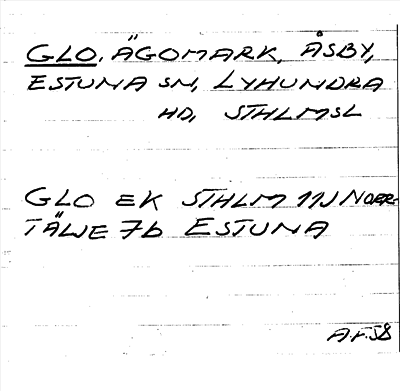 GLO. ÄGOMARK, ÅSBY,
ESTUNA SN, LYHUNDRA
HD, STHLMSL
GLO EK STHLM 11J NORR-
TÄLJE 7b ESTUNA
A.F.58